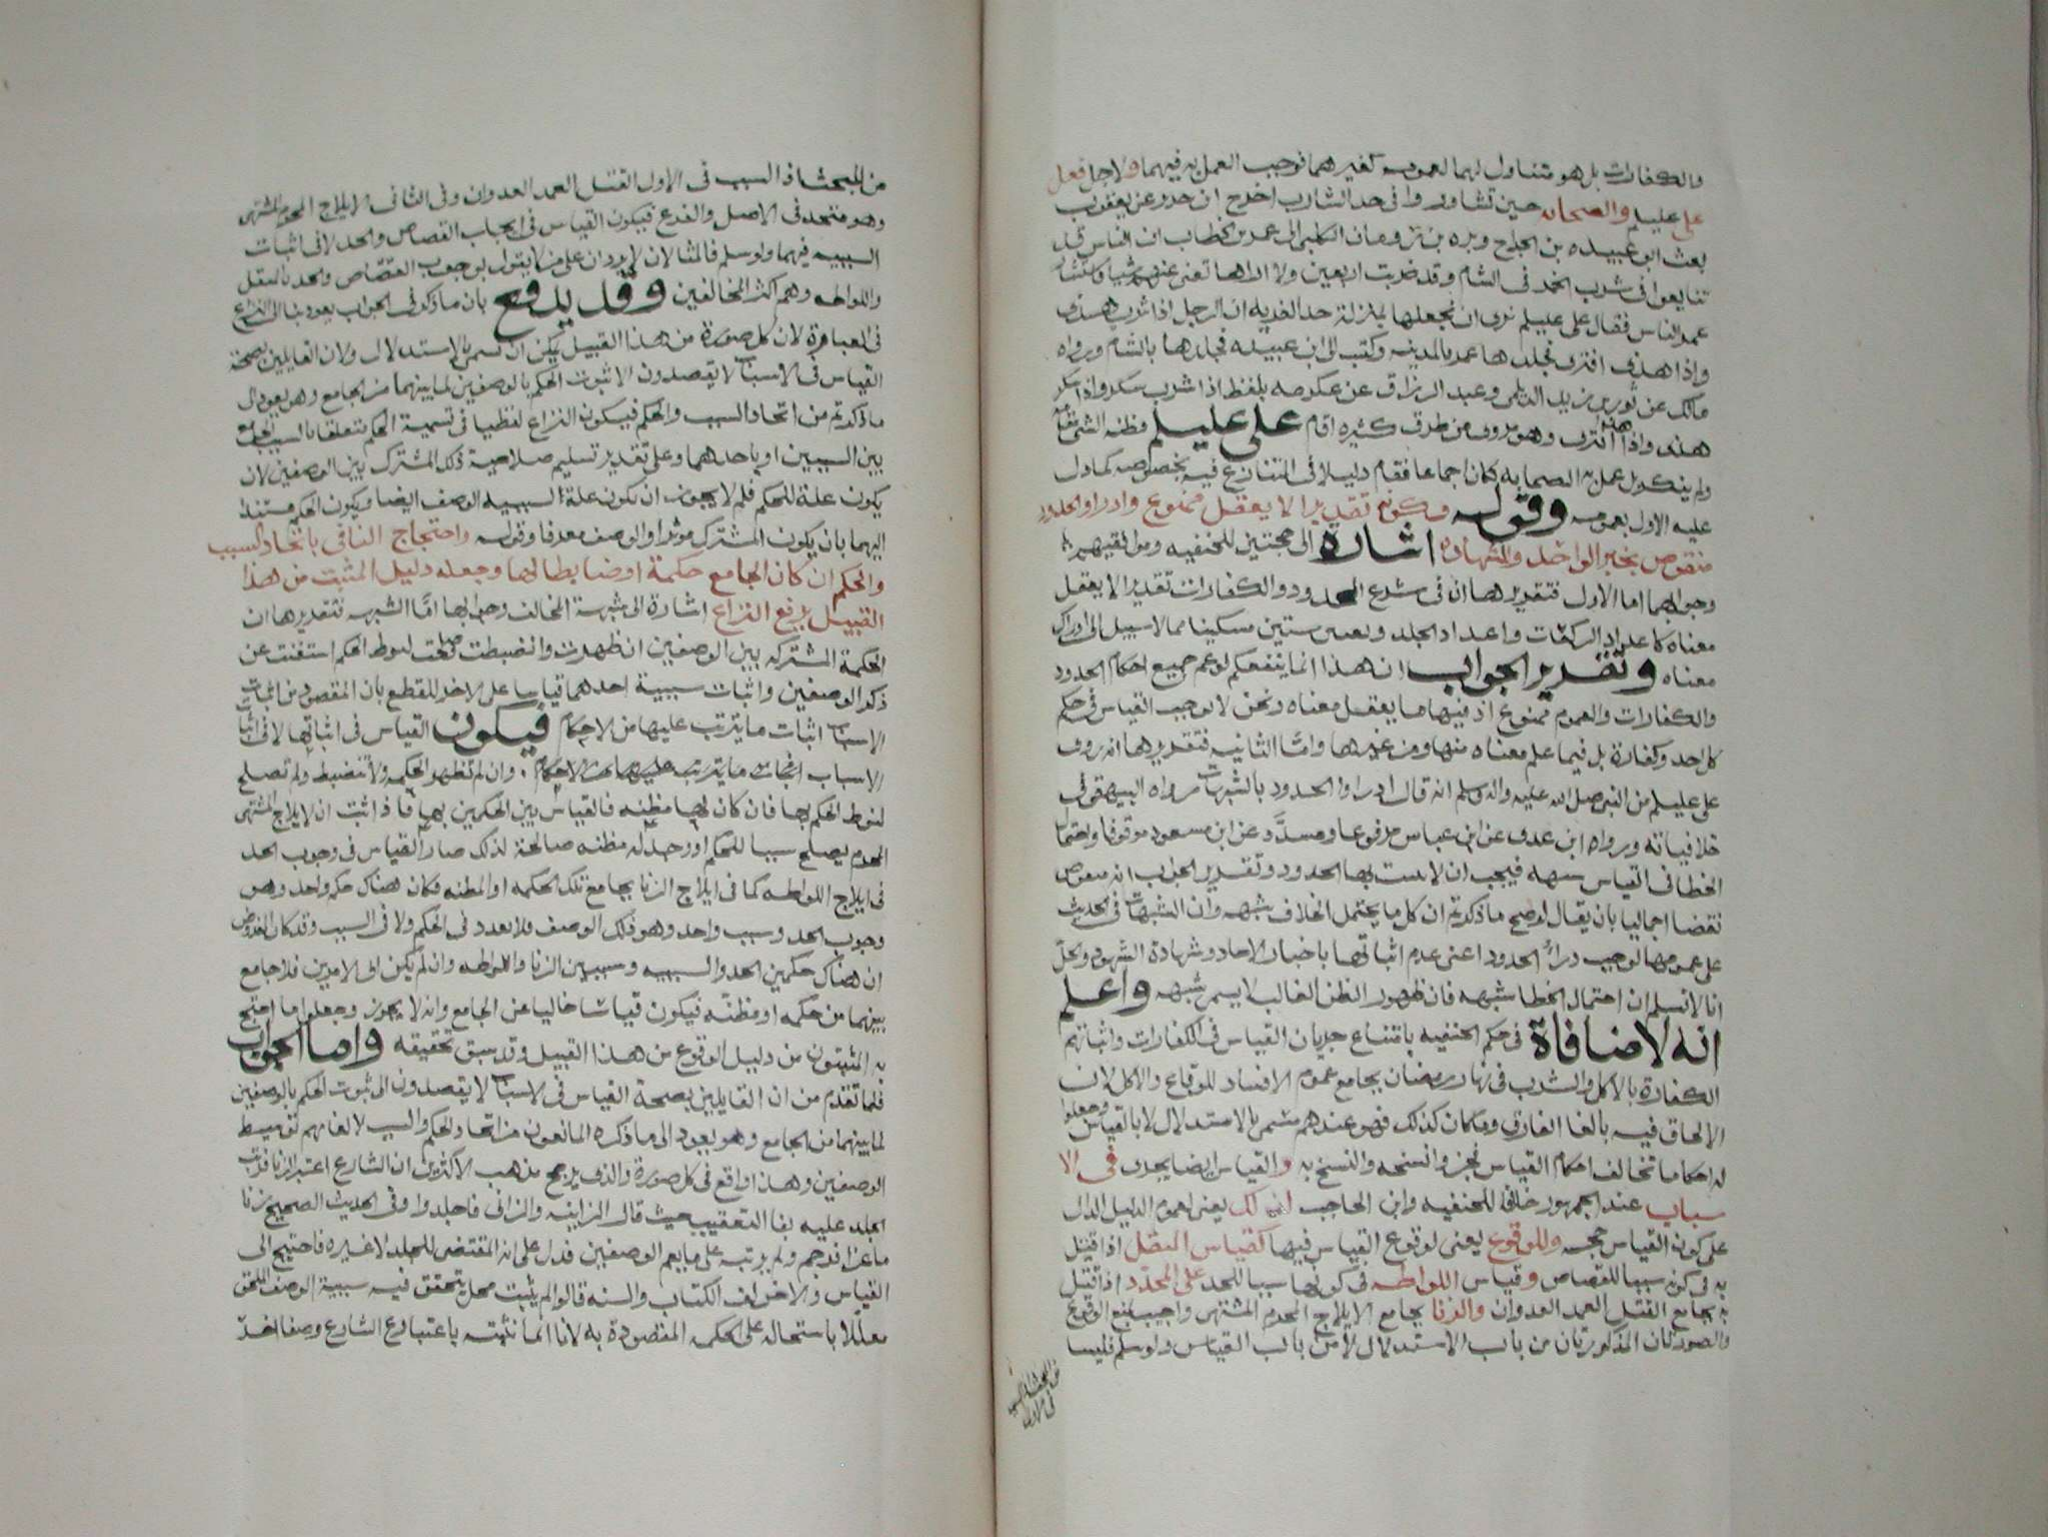 والكفارات بل هو متناول لهما لعمومه كغيرهما فوجب العمل به فيهما ولاجل فعل
علي عليلم والصحابه حين تشاوروا في حد الشارب اخرج ابن جرير عن يعقوب
بعث ابو عبيده بن الجراح وبره بن الكلبي الى عمر بن الخطاب ان الناس قد
تتايعوا في شرب الخمر في الشام وقد ضربت اربعين ولا اراها تغني عنهم شيا فاستشار
عمر الناس فقال علي عليلم نرى ان نجعلها بمنزلة حد الفريه ان الرجل اذا شرب هذى
واذا هذى افترى فجلدها عمر بالمدينه وكتب الى ابي عبيده فجلدها بالشام ورواه
مالك عن ثور بن زيد الديلمي وعبد الرزاق عن عكرمه بلفظ اذا شرب سكر واذا سكر
هذى واذا هذى افترى وهو مروى من طرق كثيره اقام علي عليلم مظنه الشي مقامه
ولم ينكر بل عمل به الصحابه كان اجماعا فقام دليلا في المتنازع فيه بخصوصه كما دل
عليه الاول بعمومه وقوله وكونه تقديرا لا يعقل ممنوع وادراوا الحدود
منقوض بخبر الواحد والشهاده اشارة الى حجتين للحنفيه ومن اليهم
وجوابهما اما الاولى فتقديرها ان في شرع الحدود والكفارات تقديرا لا يعقل
معناه كاعداد الركعات واعداد الجلد وتعيين ستين مسكينا مما لا سبيل الى ادراك
معناه وتقرير الجواب ان هذا انما ينفعكم لو عم جميع احكام الحدود
والكفارات والعموم ممنوع اذ فيها ما يعقل معناه ونحن لا نوجب القياس في حكم
كل حد وكفارة بل فيما علم معناه منها ومن غيرها واما الثانيه فتقديرها انه روى
علي عليلم من النبي صلى الله عليه واله وسلم انه قال ادراوا الحدود بالشبهات رواه البيهقي في
خلافياته ورواه ابن عدي عن ابن عباس مرفوعا ومسدد عن ابن مسعود موقوفا واحتمال
الخطا في القياس شبهه فيجب ان لا يثبت بها الحدود وتقرير الجواب انه منقوض
نقضا اجماليا بان يقال لو صح ما ذكرتم ان كل ما يحتمل الخلاف شبهه وان الشبهات في الحديث
على عمومها لوجب درأ الحدود اعني عدم اثباتها باخبار الاحاد وشهادة الشهود والحل
انا لا نسلم ان احتمال الخطا شبهه فان ظهور الظن الغالب لا يسمى شبهه واعلم
انه لا منافاة في حكم الحنفيه بامتناع جريان القياس في الكفارات واثباتهم
الكفارة بالاكل والشرب في نهار رمضان بجامع عموم الافساد للوقاع والاكل لان
الالحاق فيه بالغا الفارق وما كان كذلك فهو عندهم مسمى بالاستدلال لا بالقياس وجعلوا
له احكاما تخالف احكام القياس نحو نسخه والنسخ به والقياس ايضا يجري في الا
سباب عند الجمهور خلافا للحنفيه وابن الحاجب لذلك يعني لعموم الدليل الدال
على كون القياس حجه وللوقوع يعني لوقوع القياس فيها كقياس المثقل اذا قتل
به في كونه سببا للقصاص وقياس اللواطه في كونها سببا للحد على المحدد اذا قتل
به بجامع القتل العمد العدوان والزنا بجامع الايلاج المحرم المشتهى واجيب بمنع الوقوع
والصورتان المذكورتان من باب الاستدلال لا من باب القياس ولو سلم فليسا
من المبحث اذ السبب
في الاول
من المبحث اذ السبب في الاول القتل العمد العدوان وفي الثاني الايلاج المحرم المشتهى
وهو متحد في الاصل والفرع فيكون القياس في ايجاب القصاص والحد لا في اثبات
السببيه فيهما ولو سلم فالمثالان لا يردان على من لا يقول بوجوب القصاص والحد بالمثقل
واللواطه وهم اكثر المخالفين وقد يدفع بان ما ذكر في الجواب يعود بنا الى النزاع
في العبارة لان كل صورة من هذا القبيل يمكن ان تسمى بالاستدلال ولان القايلين بصحة
القياس في الاسباب لا يقصدون الا ثبوت الحكم بالوصفين لما بينهما من الجامع وهو يعود الى
ما ذكرتم من اتحاد السبب والحكم فيكون النزاع لفظيا في تسمية الحكم متعلقا بالسبب الجامع
بين السببين او باحدهما وعلى تقدير تسليم صلاحية ذلك المشترك بين الوصفين لان
يكون علة للحكم فلم لا يجوز ان تكون علة السببيه الوصف ايضا ويكون الحكم مستندا
اليهما بان يكون المشترك موثرا والوصف معرفا وقوله واحتجاج النافي باتحاد السبب
والحكم ان كان الجامع حكمة او ضابطا لها وجعله دليل المثبت من هذا
القبيل يرفع النزاع اشارة الى شبهة المخالف وجوابها اما الشبهه فتقديرها ان
الحكمة المشتركه بين الوصفين ان ظهرت وانضبطت صلحت لنوط الحكم استغنت عن
ذكر الوصفين واثبات سببية احدهما قياسا على الاخر للقطع بان المقصود من اثبات
الاسباب اثبات ما يترتب عليها من الاحكام فيكون القياس في اثباتها لا في اثبات
الاسباب اثبات ما يترتب عليها من الاحكام وان لم تظهر الحكمه ولا تنضبط ولم تصلح
لنوط الحكم بها فان كان لها مظنه فالقياس بين الحكمين بها فاذا ثبت ان الايلاج المشتهى
المحرم يصلح سببا للحكم او وجد له مظنه صالحة لذلك صار القياس في وجوب الحد
في ايلاج اللواطه كما في ايلاج الزنا بجامع تلك الحكمه او المظنه فكان هناك حكم واحد وهو
وجوب الحد وسبب واحد وهو ذلك الوصف فلا تعدد في الحكم ولا في السبب وقد كان المفروض
ان هناك حكمين الحد والسببيه وسببين الزنا واللواطه وان لم يكن اي الامرين فلا جامع
بينهما من حكمه او مظنه فيكون قياسا خاليا عن الجامع وانه لا يجوز وجعلوا ما احتج
به المثبتون من دليل الوقوع من هذا القبيل وقد سبق تحقيقه واما الجواب
فلما تقدم من ان القايلين بصحة القياس في الاسباب لا يقصدون الى ثبوت الحكم بالوصفين
لما بينهما من الجامع وهو يعود الى ما ذكره المانعون من اتحاد الحكم والسبب لالغائهم توسيط
الوصفين وهذا واقع في كل صورة والذي يرجح مذهب الاكثرين ان الشارع اعتبر الزنا فرتب
الجلد عليه بفا التعقيب حيث قال الزانيه والزاني فاجلدوا وفي الحديث الصحيح زنا
ماعز فرجم ولم يرتبه على ما يعم الوصفين فدل على انه المقتضى للجلد لا غيره فاحتيج الى
القياس والاخر الكتاب والسنه قالوا لم يثبت محل يتحقق فيه سببية الوصف الملحق
معللا باستحاله على الحكمه المقصودة به لانا انما نثبته باعتبار الشارع وصفا اخر